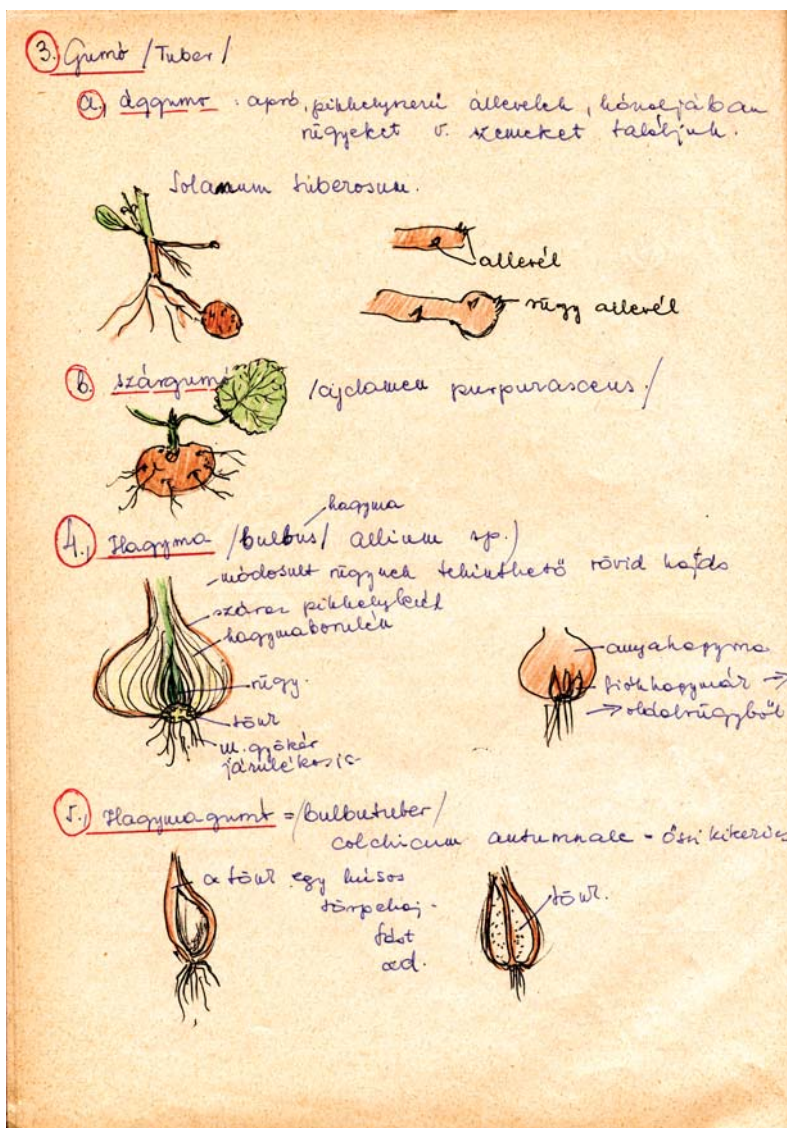 3. Gumó /Tuber/
a, ággumó : apró, pikkelyszerű állevelek, hónaljában
rügyeket v. szemeket találjuk.
Solanum tuberosum.
allevél
rügy allevél
b. szárgumó /ciclamen purpurascens/
hagyma
4., Hagyma /bulbus/ allium sp.)
módosult rügynek tekinthető rövid hajtás
száraz pikkelylevél
hagymaburulék
rügy.
tönk
m. gyökér
járulékos is
anyahagyma
fiókhagymák →
→ oldalrügyből
5., Hagymagumó = /bulbutuber/
colchicum autumnale - őszi kikerics
a tönk egy húsos
törpehaj-
tást
ad.
tönk.